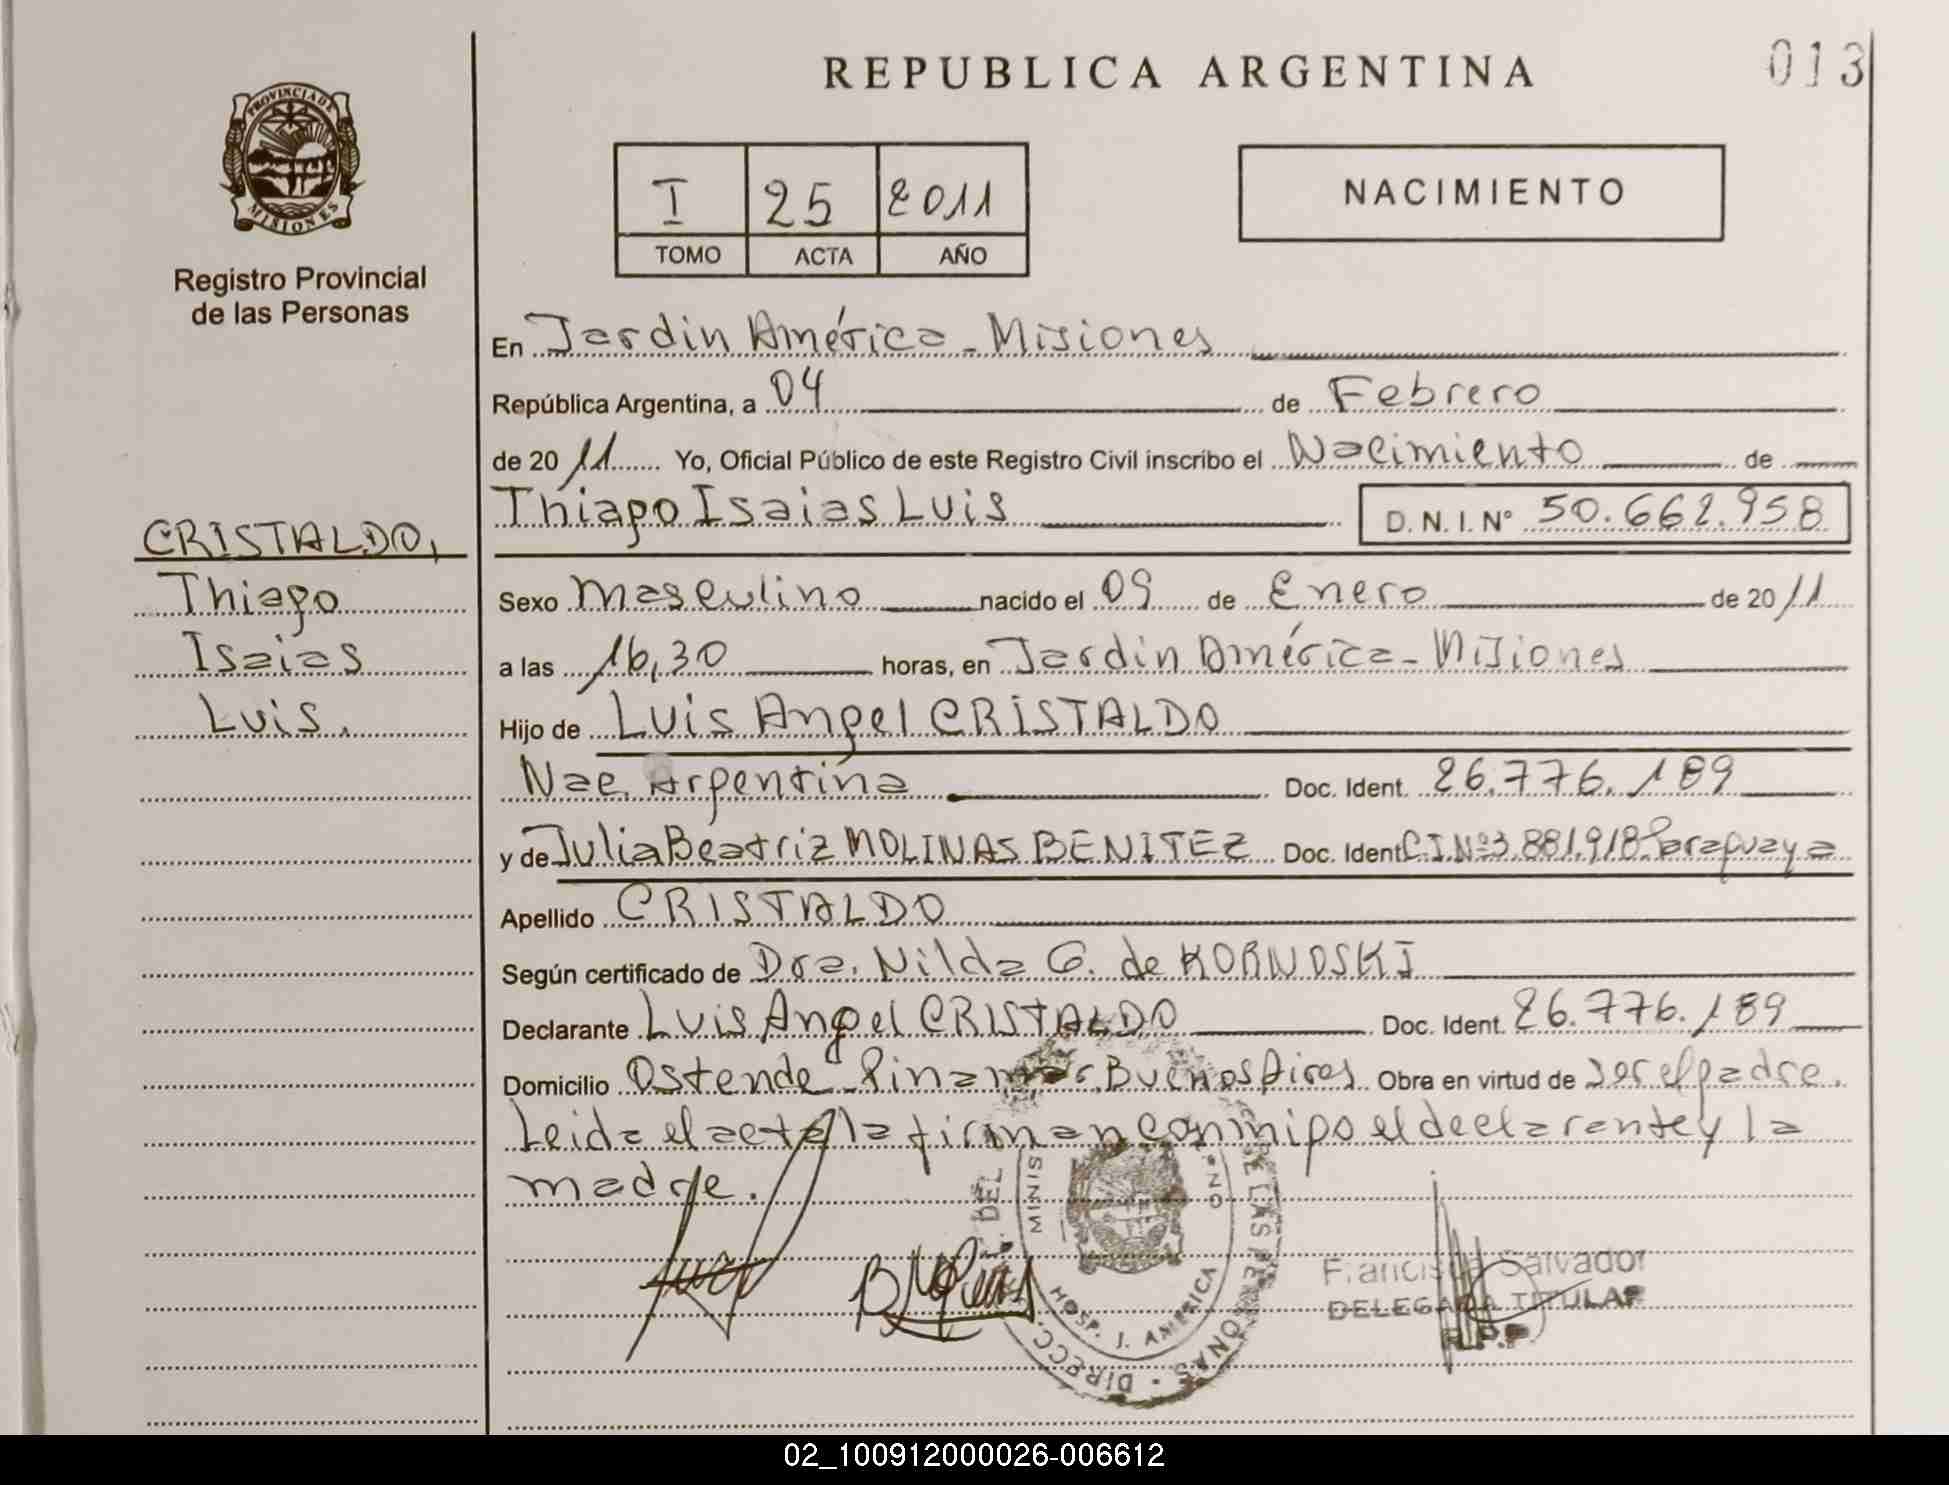 REPUBLICA ARGENTINA
013
PROVINCIA DE
MISIONES
Registro Provincial
de las Personas
I 25 2011
TOMO ACTA AÑO
NACIMIENTO
En Jardin América - Misiones
República Argentina, a 04 de Febrero
de 2011 Yo, Oficial Público de este Registro Civil inscribo el Nacimiento de
Thiago Isaias Luis D.N.I.Nº 50.662.958
CRISTALDO,
Thiago
Isaias
Luis.
Sexo Masculino nacido el 09 de Enero de 2011
a las 16,30 horas, en Jardin América - Misiones
Hijo de Luis Angel CRISTALDO
Nac. Argentina Doc. Ident. 26.776.189
y de Julia Beatriz MOLINAS BENITEZ Doc. Ident C.I.Nº3.881.918 Paraguaya
Apellido CRISTALDO
Según certificado de Dra. Nilda G. de KORNOSKI
Declarante Luis Angel CRISTALDO Doc. Ident. 26.776.189
Domicilio Ostende Pinamar, Buenos Aires Obra en virtud de ser el padre.
Leida el acta la firman conmigo el declarante y la
madre.
DIRECC. DEL DE LAS PERSONAS
MINIS
HOSP. J. AMERICA
Francisca Salvador
DELEGADA TITULAR
R.P.P
02_100912000026-006612